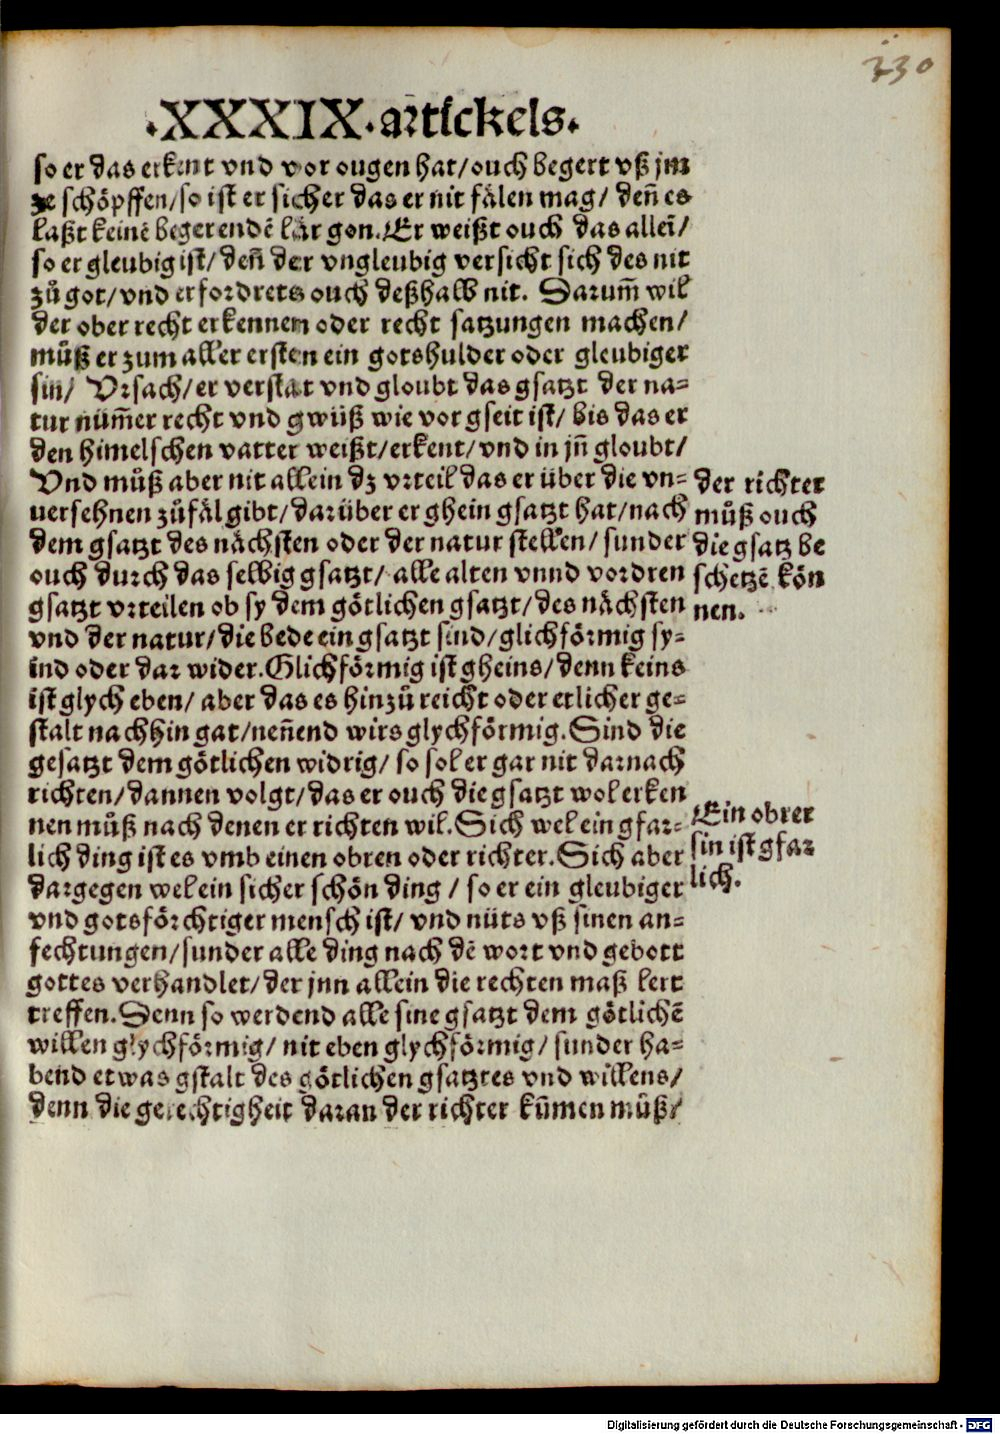 330
.XXXIX. artickels.
so er das erkent vnd vor ougen hat/ouch begert vß jm
ze schöpffen/so ist er sicher das er nit fälen mag/ deñ es
laßt keinē begerendē lär gon. Er weißt ouch das alleī/
so er gleubig ist/ deñ der vngleubig versicht sich des nit
zů got/vnd erfordrets ouch deßhalb nit. Darum̄ wil
der ober recht erkennen oder recht satzungen machen/
můß er zum aller ersten ein gotshulder oder gleubiger
sin/ Vrsach/er verstat vnd gloubt das gsatzt der na-
tur nüm̄er recht vnd gwüß wie vor gseit ist/ bis das er
den himelschen vatter weißt/erkent/vnd in jñ gloubt/
Vnd můß aber nit allein dz vrteil das er über die vn-
uersehnen zůfäl gibt/darüber er ghein gsatzt hat/nach
dem gsatzt des nächsten oder der natur stellen/sunder
ouch durch das selbig gsatzt/ alle alten vnnd vordren
gsatzt vrteilen ob sy dem götlichen gsatzt/des nächsten
vnd der natur/die bede ein gsatzt sind/glichförmig sy-
ind oder dar wider. Glichförmig ist gheins/denn keins
ist glych eben/ aber das es hinzů reicht oder etlicher ge-
stalt nachhin gat/neñend wirs glychförmig. Sind die
gesatzt dem götlichen widrig/ so sol er gar nit darnach
richten/dannen volgt/das er ouch die gsatzt wol erken
nen můß nach denen er richten wil. Sich wel ein gfar-
lich ding ist es vmb einen obren oder richter. Sich aber
dargegen wel ein sicher schön ding / so er ein gleubiger
vnd gotsförchtiger mensch ist/ vnd nüts vß sinen an-
fechtungen/sunder alle ding nach dē wort vnd gebott
gottes verhandlet/der jnn allein die rechten maß lert
treffen. Denn so werdend alle sine gsatzt dem götlichē
willen glychförmig/ nit eben glychförmig/ sunder ha-
bend etwas gstalt des götlichen gsatztes vnd willens/
denn die gerechtigheit daran der richter kūmen můß/
der richter
můß ouch
die gsatz be
schetzē kön
nen.
Ein obrer
sin ist gfar
lich.
Digitalisierung gefördert durch die Deutsche Forschungsgemeinschaft - DFG